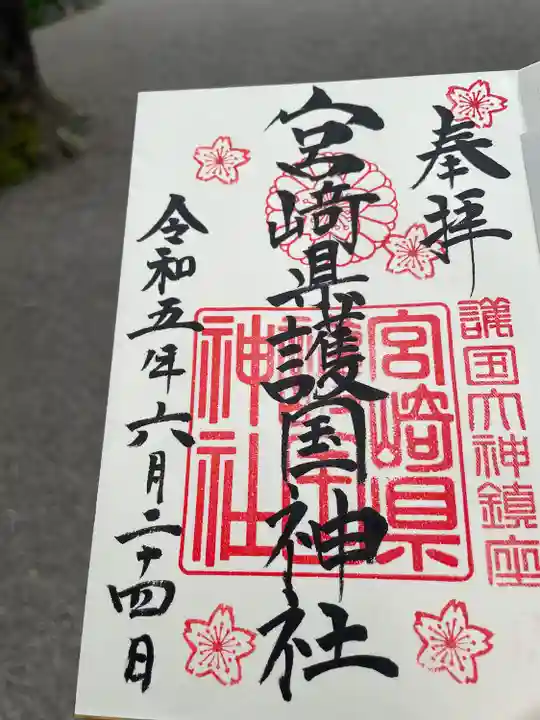 奉拝
護国大神鎮座
宮﨑県護国神社
宮崎県
護国
神社
令和五年六月二十四日